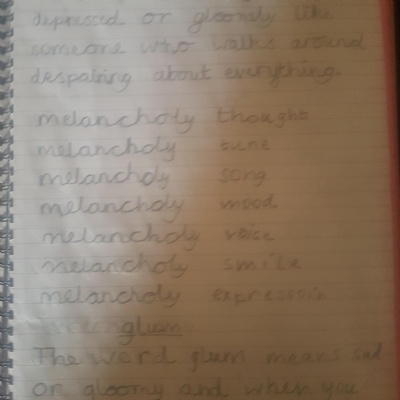 depressed or gloomly like
someone who walks around
despairing about everything.
melancholy thought
melancholy tune
melancholy song
melancholy mood
melancholy voice
melancholy smile
melancholy expresssin
glum
The word glum means sad
or gloomy and when you